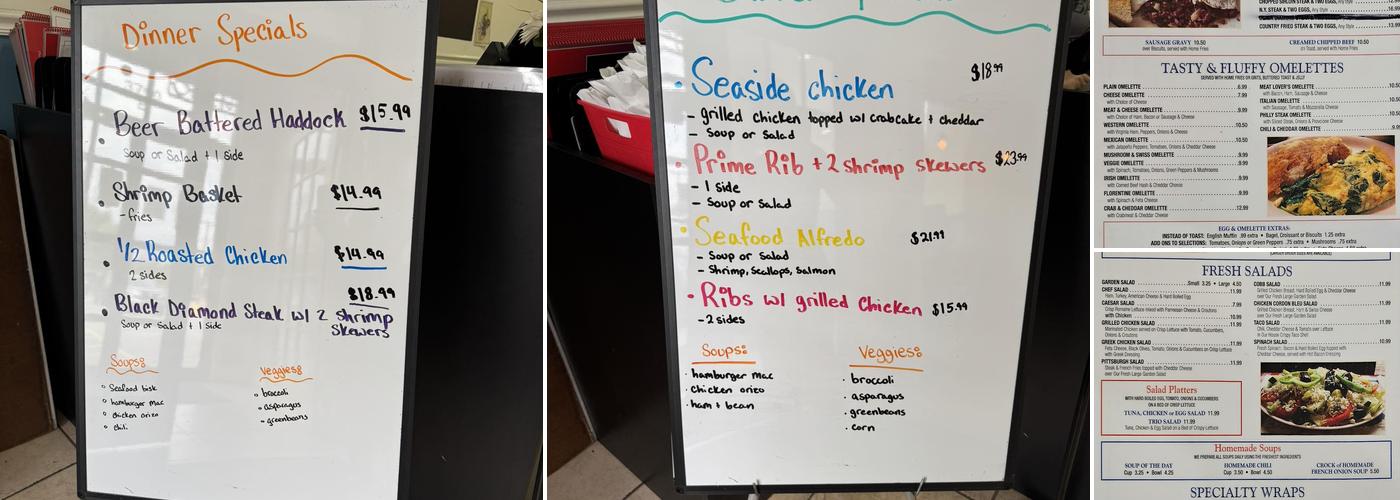 Dinner Specials
Beer Battered Haddock $15.99
Soup or Salad + 1 side
Shrimp Basket $14.99
- fries
1/2 Roasted Chicken $14.99
2 sides
$18.99
Black Diamond Steak w/ 2 Shrimp
Skewers
Soup or Salad + 1 side
Soups:
Seafood bisk
hamburger Mac
Chicken orizo
Chili
Veggies:
broccoli
asparagus
greenbeans
Seaside chicken $18.99
- grilled chicken topped w/ crabcake + cheddar
- Soup or Salad
Prime Rib + 2 shrimp skewers $23.99
- 1 side
- Soup or Salad
Seafood Alfredo $21.99
- Soup or Salad
- Shrimp, Scallops, Salmon
Ribs w/ grilled Chicken $15.99
- 2 sides
Soups:
hamburger Mac
chicken orizo
ham + bean
Veggies:
broccoli
asparagus
greenbeans
corn
N.Y. STEAK & TWO EGGS, Any Style
COUNTRY FRIED STEAK & TWO EGGS, Any Style
SAUSAGE GRAVY 10.50
over Biscuits, served with Home Fries
CREAMED CHIPPED BEEF 10.50
on Toast, served with Home Fries
TASTY & FLUFFY OMELETTES
SERVED WITH HOME FRIES OR GRITS, BUTTERED TOAST & JELLY
PLAIN OMELETTE 6.99
CHEESE OMELETTE 7.99
with Choice of Cheese
MEAT & CHEESE OMELETTE 9.99
with Choice of Ham, Bacon or Sausage & Cheese
WESTERN OMELETTE 10.50
with Virginia Ham, Peppers, Onions & Cheese
MEXICAN OMELETTE 10.50
with Jalapeño Peppers, Tomatoes, Onions & Cheddar Cheese
MUSHROOM & SWISS OMELETTE 9.99
VEGGIE OMELETTE 9.99
with Spinach, Tomatoes, Onions, Green Peppers & Mushrooms
IRISH OMELETTE 9.99
with Corned Beef Hash & Cheddar Cheese
FLORENTINE OMELETTE 9.99
with Spinach & Feta Cheese
CRAB & CHEDDAR OMELETTE 12.99
with Crabmeat & Cheddar Cheese
MEAT LOVER'S OMELETTE
with Bacon, Ham, Sausage & Cheese
ITALIAN OMELETTE
with Sausage, Tomato & Mozzarella Cheese
PHILLY STEAK OMELETTE
with Sliced Steak, Onions & Provolone Cheese
CHILI & CHEDDAR
EGG & OMELETTE EXTRAS:
INSTEAD OF TOAST: English Muffin .99 extra • Bagel, Croissant or Biscuits 1.25 extra
ADD ONS TO SELECTIONS: Tomatoes, Onions or Green Peppers .75 extra • Mushrooms .75 extra
FRESH SALADS
GARDEN SALAD Small 3.25 • Large 4.50
CHEF SALAD 11.99
Ham, Turkey, American Cheese & Hard Boiled Egg
CAESAR SALAD 7.99
Crisp Romaine Lettuce mixed with Parmesan Cheese & Croutons
with Chicken 10.99
GRILLED CHICKEN SALAD 11.99
Marinated Chicken served on Crisp Lettuce with Tomato, Cucumbers,
Onions & Croutons
GREEK CHICKEN SALAD 11.99
Feta Cheese, Black Olives, Tomato, Onions & Cucumbers on Crisp Lettuce
with Greek Dressing
PITTSBURGH SALAD 11.99
Steak & French Fries topped with Cheddar Cheese
over our Fresh Large Garden Salad
COBB SALAD 11.99
Grilled Chicken Breast, Hard Boiled Egg & Cheddar Cheese
over Our Fresh Large Garden Salad
CHICKEN CORDON BLEU SALAD 11.99
Grilled Chicken Breast, Ham & Swiss Cheese
over Our Fresh Large Garden Salad
TACO SALAD 11.99
Chili, Cheddar Cheese & Tomato over Lettuce
in Our House Crispy Taco Shell
SPINACH SALAD 10.99
Fresh Spinach, Bacon & Hard Boiled Egg topped with
Cheddar Cheese, served with Hot Bacon Dressing
Salad Platters
WITH HARD BOILED EGG, TOMATO, ONIONS & CUCUMBERS
ON A BED OF CRISP LETTUCE
TUNA, CHICKEN or EGG SALAD 11.99
TRIO SALAD 11.99
Tuna, Chicken & Egg Salad on a Bed of Crisp Lettuce
Homemade Soups
WE PREPARE ALL SOUPS DAILY USING THE FRESHEST INGREDIENTS
SOUP OF THE DAY
Cup 3.25 • Bowl 4.25
HOMEMADE CHILI
Cup 3.50 • Bowl 4.50
CROCK of HOMEMADE
FRENCH ONION SOUP 5.50
SPECIALTY WRAPS